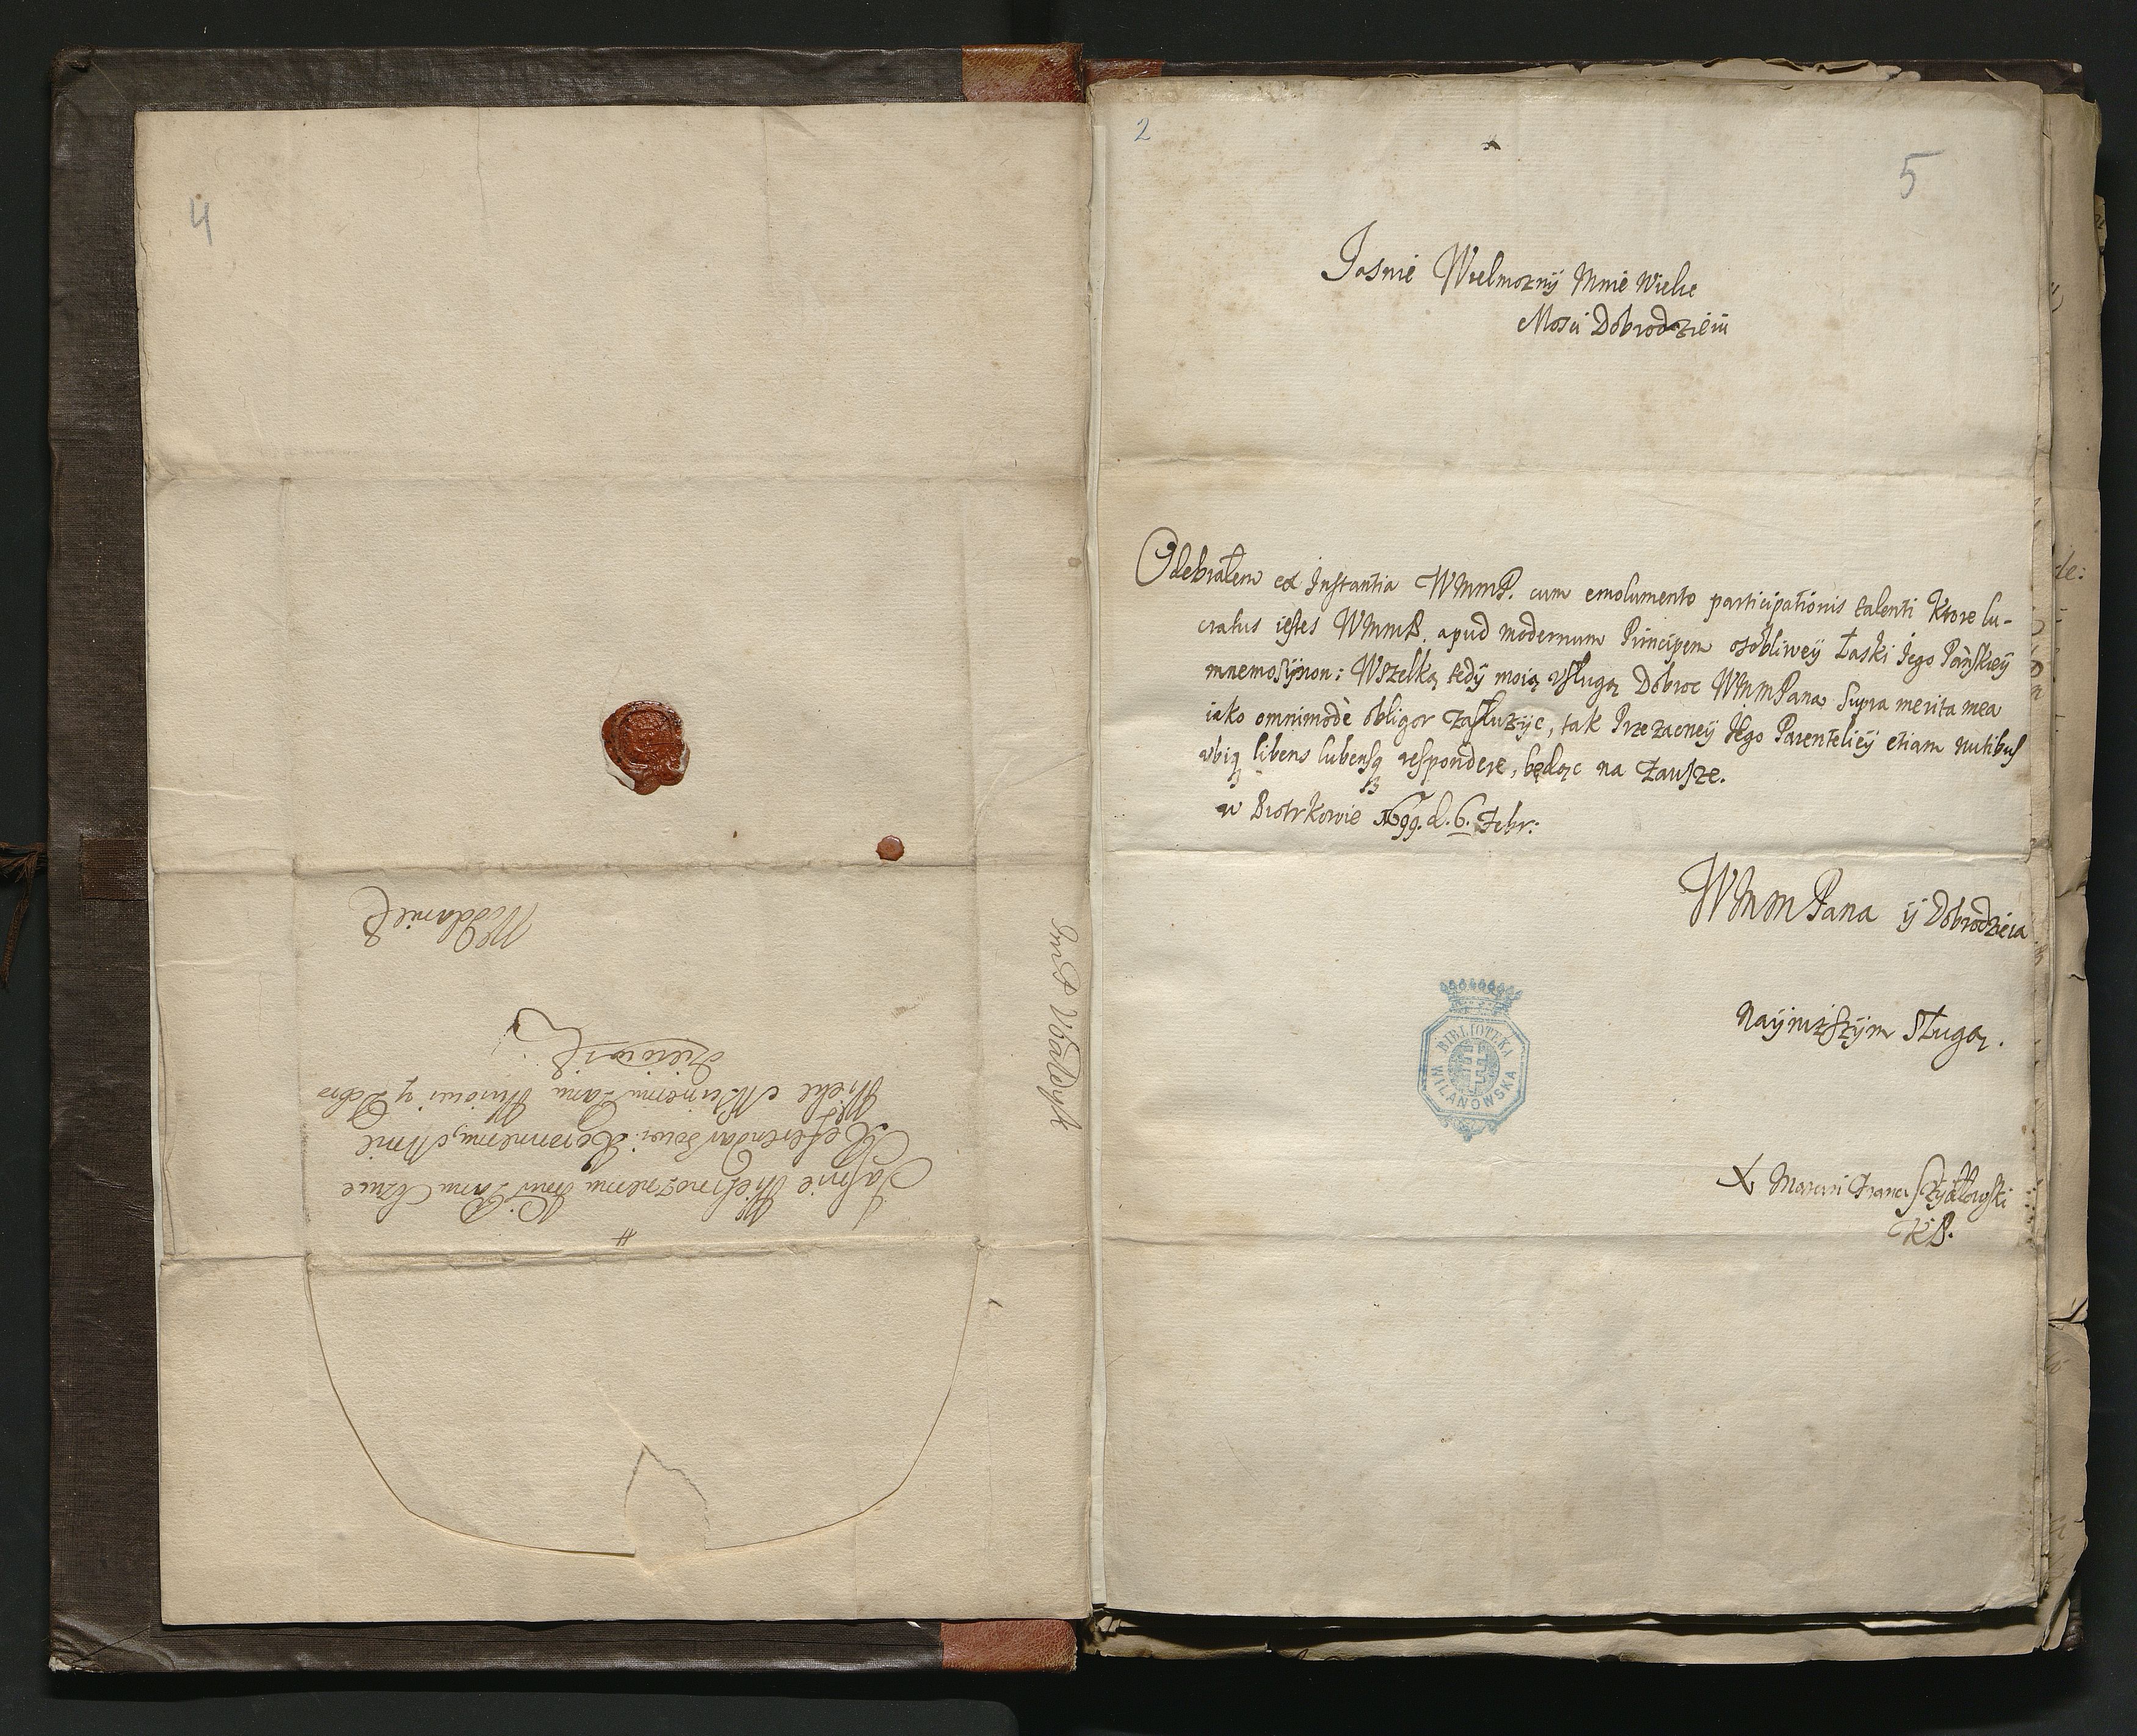 4
Jaśnie Wielmożnemu Jmś Panu
Referendarzowi Koronnemu, Mnie
Wielce Mściwemu Panu y Dobro
dzieiowi
W Gdanie
JmP Wołłdysk
2
5
Jasnie Wielmoznÿ Mnie Wielce
Mosci Dobrodzieiu
Odebrałem ex Instantia WMmP. cum emolumento participationis talenti ktore lu-
cratus iestes WMmP. apud modernum Principem osobliweÿ Łaski Jego Pańskieÿ
mnemosÿnon: Wszelką tedÿ moią usługą Dobroc WMmPana supra merita mea
iako omnimodè obligor zasłuzÿc, tak Przezacneÿ Jego Parenteliëÿ etiam nutibus
ubiq libens lubensq respondere, będąc na zawsze.
w Piotrkowie 1699. d. 6. Febr:
WMmPana ÿ Dobrodzieia
Naÿnizszÿm Sługą.
X Marcin Franci Szÿdłowski
KP.
BIBLIOTEKA
WILANOWSKA